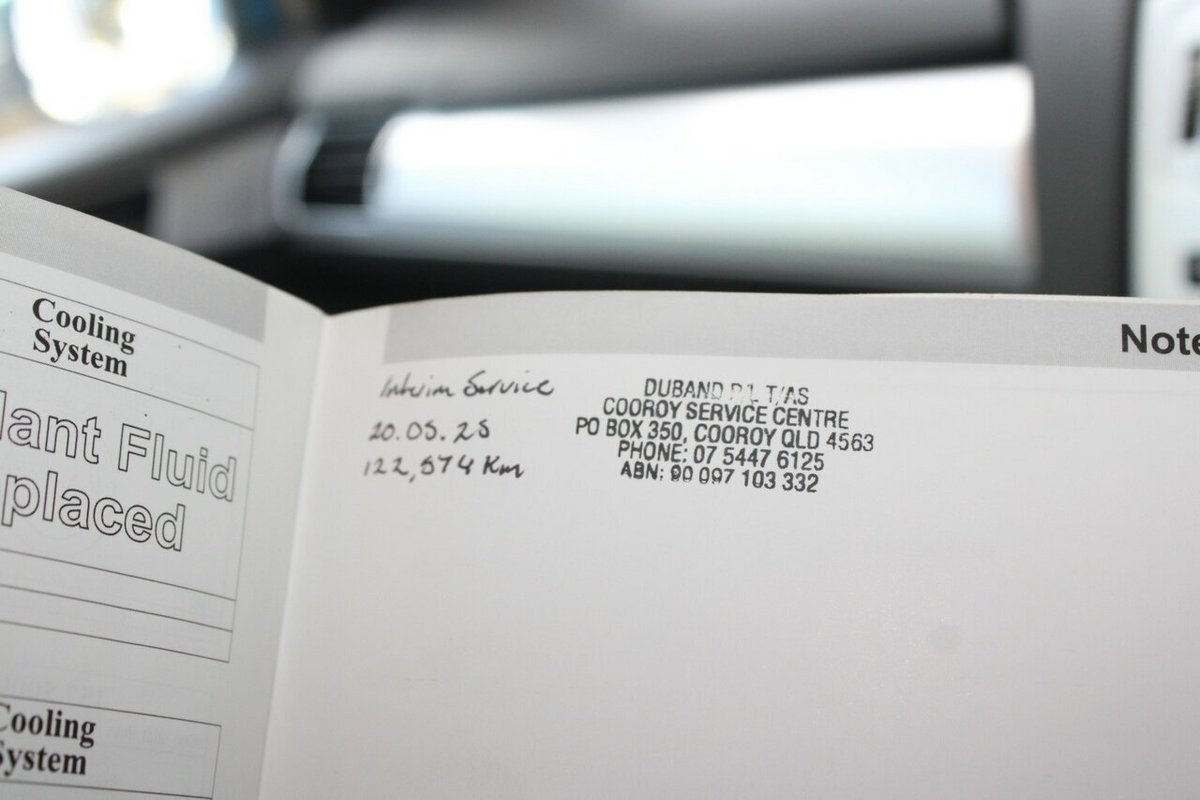 Cooling
System
lant Fluid
placed
Cooling
System
Note
Interim Service
20.05.25
122,574 Km
DUBAND P/L T/AS
COOROY SERVICE CENTRE
PO BOX 350, COOROY QLD 4563
PHONE: 07 5447 6125
ABN: 90 097 103 332